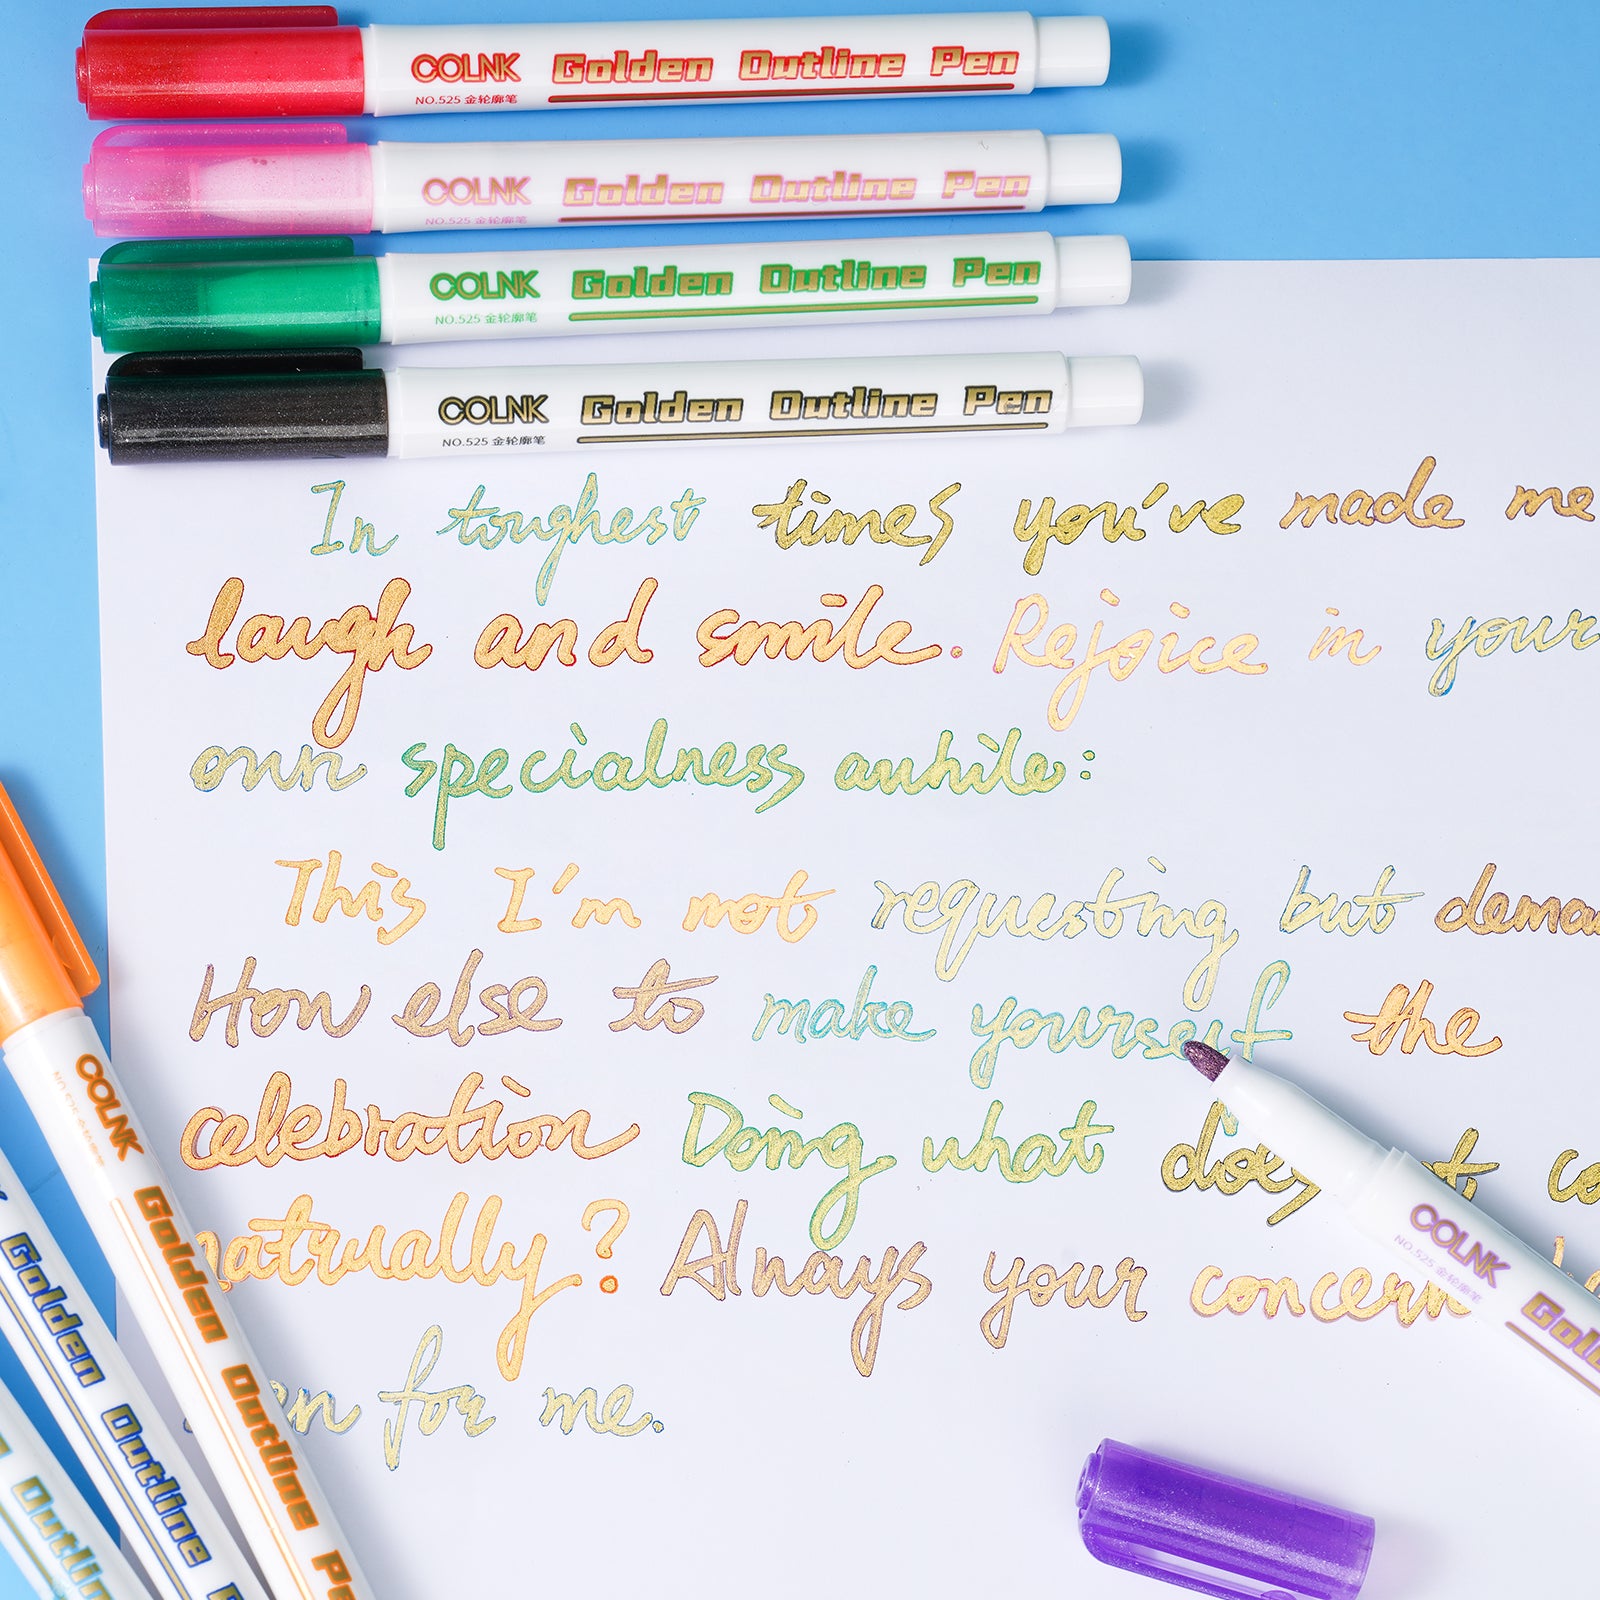 COLNK Golden Outline Pen
NO.525 金轮廓笔
COLNK Golden Outline Pen
NO.525 金轮廓笔
COLNK Golden Outline Pen
NO.525 金轮廓笔
COLNK Golden Outline Pen
NO.525 金轮廓笔
In toughest times you've made me
laugh and smile. Rejoice in your
own specialness awhile:
This I'm not requesting but
How else to make yourself the
celebration Doing what does
natrually? Always your concern
for me.
COLNK Golden Outline
NO.525 金轮廓笔
Golden Outline
Outline
COLNK
NO.525 金轮廓笔